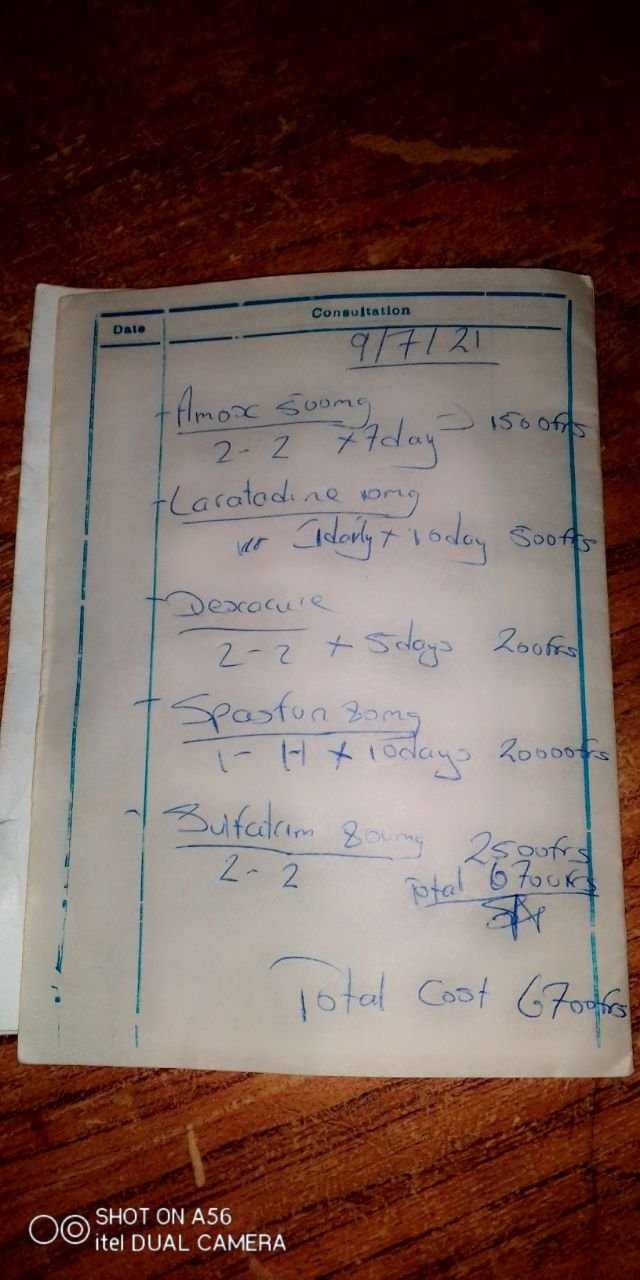 Date Consultation
9/7/21
- Amox 500mg
2-2 x7day => 1500frs
- Laratadine 10mg
1daily x 10day 500frs
- Dexacure
2-2 x 5days 200frs
- Spasfon 80mg
1- x 10days 20000frs
- Sulfatrim 800mg 2500frs
2-2 Total 6700frs
Total Cost 6700frs
SHOT ON A56
itel DUAL CAMERA